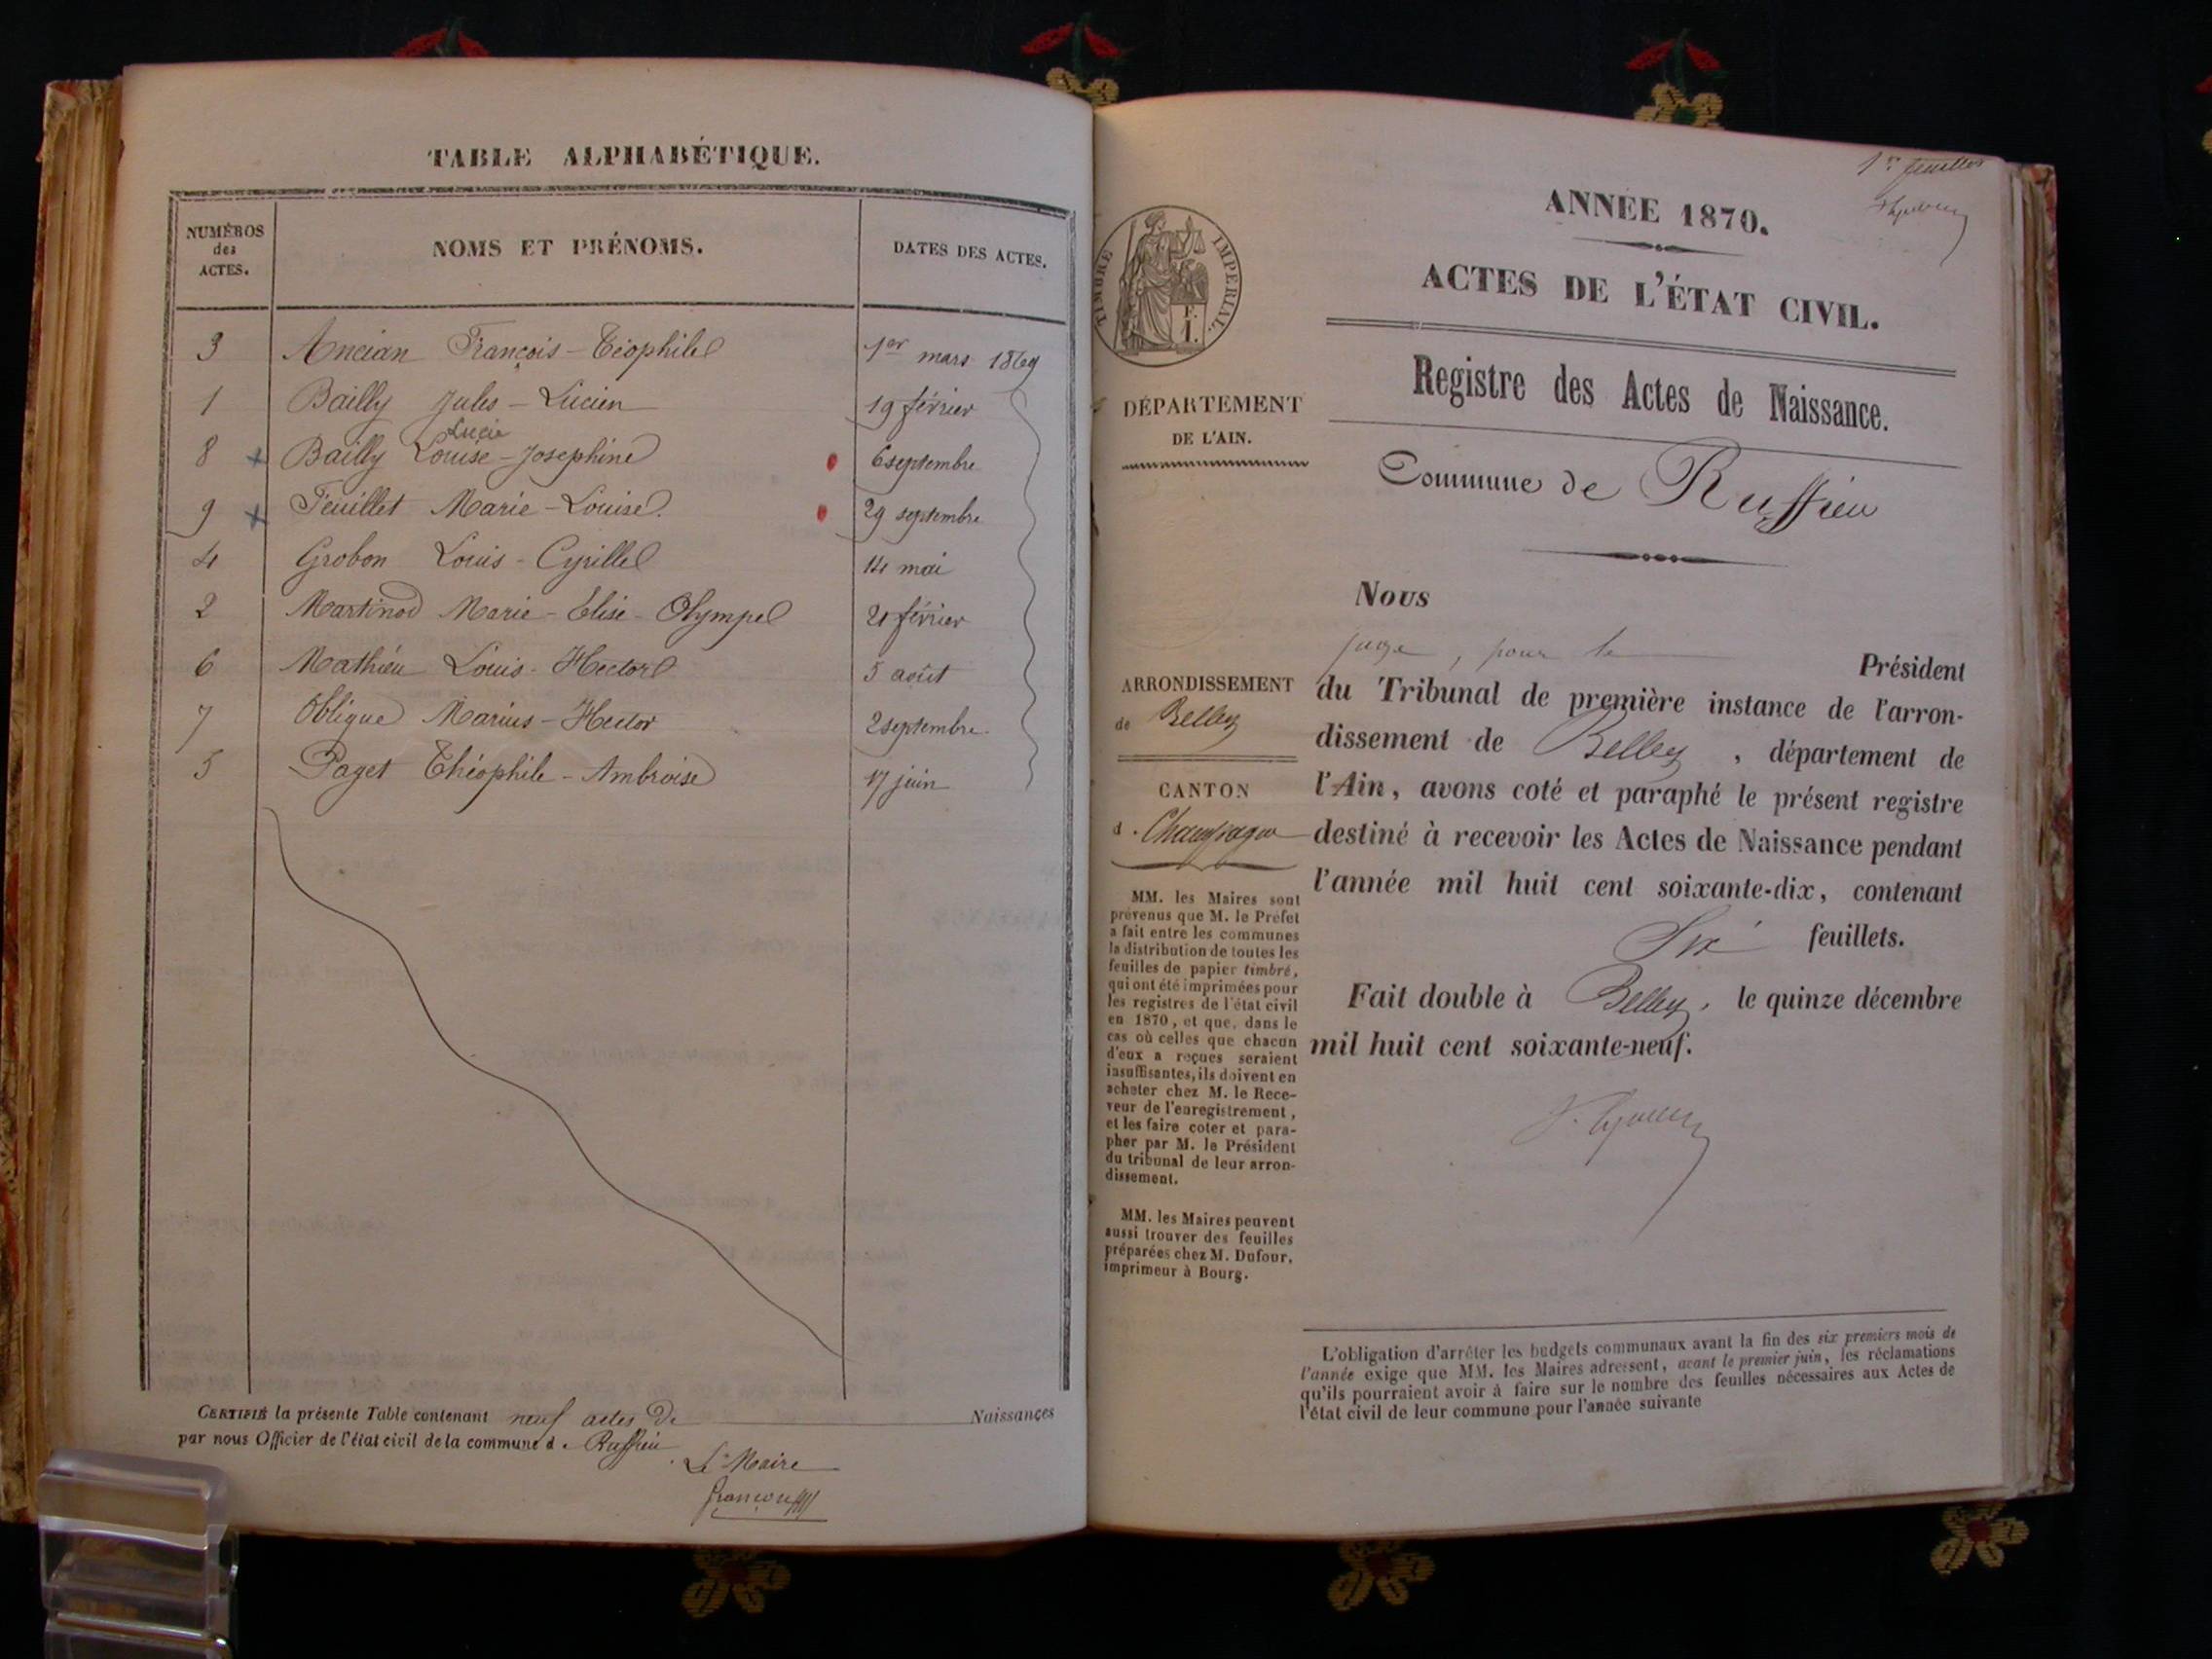 TABLE ALPHABÉTIQUE.
NUMÉROS des ACTES.
NOMS ET PRÉNOMS.
DATES DES ACTES.
3 Ancian François-Téophile 1er mars 1869
1 Bailly Jules-Lucien 19 février
Lucie
8 + Bailly Louise-Josephine 6 septembre
9 + Feuillet Marie-Louise. 29 septembre
4 Grobon Louis-Cyrille 14 mai
2 Martinod Marie-Elise-Olympe 21 février
6 Mathieu Louis-Hector 5 août
7 Oblique Marius-Hector 2 septembre.
5 Paget Théophile-Ambroise 17 juin
CERTIFIÉ la présente Table contenant neuf actes de Naissances
par nous Officier de l'état civil de la commune d. Ruffieu
Le Maire
1er feuillet
ANNÉE 1870.
ACTES DE L'ÉTAT CIVIL.
Registre des Actes de Naissance.
Commune de Ruffieu
TIMBRE IMPERIAL.
F.
1.
DÉPARTEMENT
DE L'AIN.
ARRONDISSEMENT
de Belley
CANTON
d. Champagne
MM. les Maires sont
prévenus que M. le Préfet
a fait entre les communes
la distribution de toutes les
feuilles de papier timbré,
qui ont été imprimées pour
les registres de l'état civil
en 1870, et que, dans le
cas où celles que chacun
d'eux a reçues seraient
insuffisantes, ils doivent en
acheter chez M. le Rece-
veur de l'enregistrement,
et les faire coter et para-
pher par M. le Président
du tribunal de leur arron-
dissement.
MM. les Maires peuvent
aussi trouver des feuilles
préparées chez M. Dufour,
imprimeur à Bourg.
Nous
juge, pour le Président
du Tribunal de première instance de l'arron-
dissement de Belley, département de
l'Ain, avons coté et paraphé le présent registre
destiné à recevoir les Actes de Naissance pendant
l'année mil huit cent soixante-dix, contenant
Six feuillets.
Fait double à Belley, le quinze décembre
mil huit cent soixante-neuf.
L'obligation d'arrêter les budgets communaux avant la fin des six premiers mois de
l'année exige que MM. les Maires adressent, avant le premier juin, les réclamations
qu'ils pourraient avoir à faire sur le nombre des feuilles nécessaires aux Actes de
l'état civil de leur commune pour l'année suivante